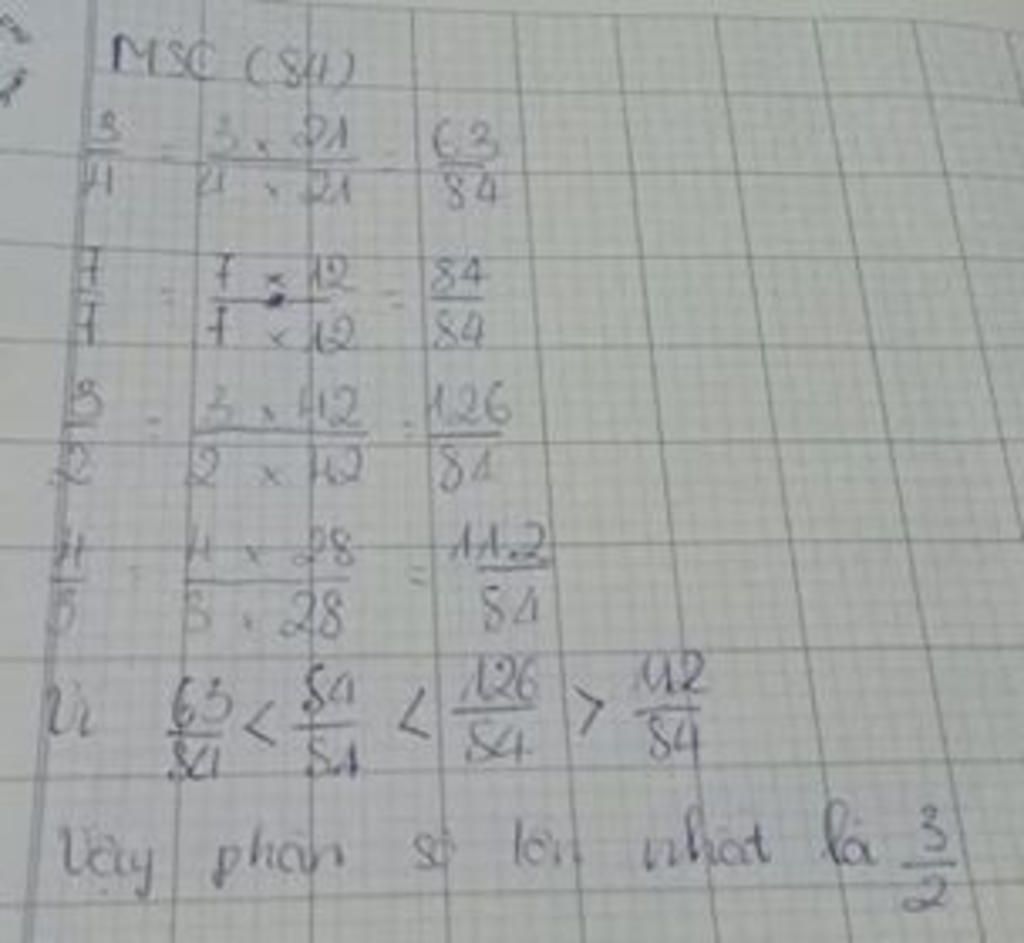 MSC (84)
3/4 = 3 × 21 / 4 × 21 = 63/84
7/7 = 7 × 12 / 7 × 12 = 84/84
3/2 = 3 × 42 / 2 × 42 = 126/84
4/3 = 4 × 28 / 3 × 28 = 112/84
Vì 63/84 < 84/84 < 126/84 > 112/84
Vậy phân số lớn nhất là 3/2